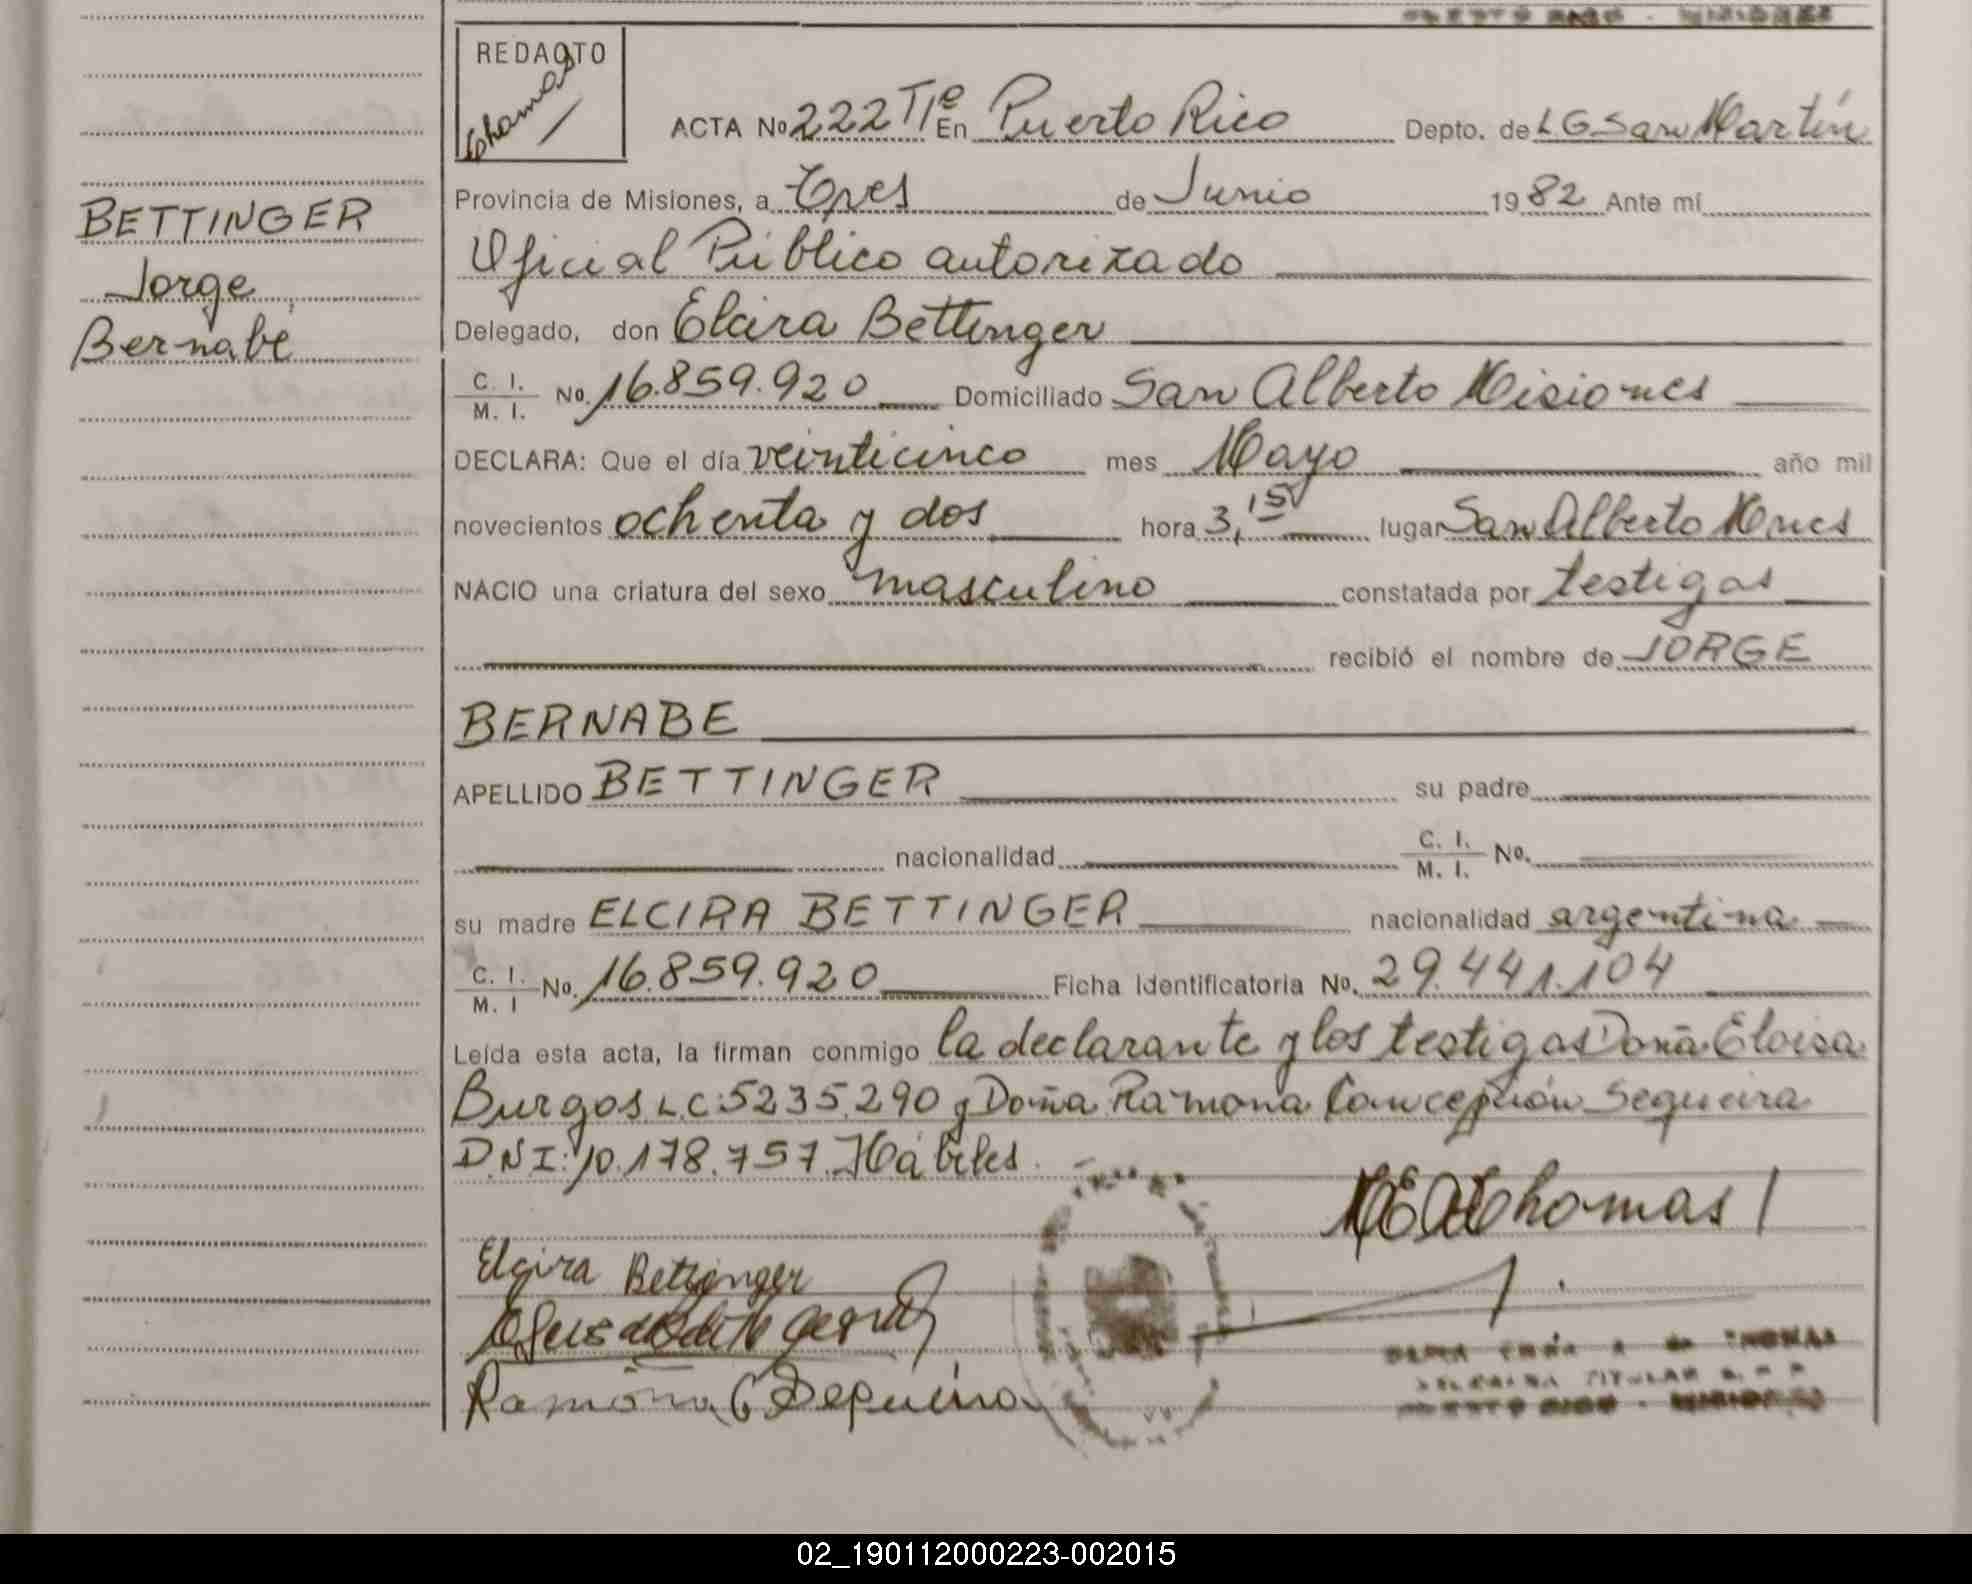 REDACTO
Thomas
ACTA No 222 TIº En Puerto Rico Depto. de L G San Martín
Provincia de Misiones, a Tres de Junio 1982 Ante mí
Oficial Público autorizado
BETTINGER
Jorge
Bernabé
Delegado, don Elcira Bettinger
C. I. M. I. No. 16.859.920 Domiciliado San Alberto Misiones
DECLARA: Que el día veinticinco mes Mayo año mil
novecientos ochenta y dos hora 3,15 lugar San Alberto Mnes
NACIO una criatura del sexo masculino constatada por testigos
recibió el nombre de JORGE
BERNABE
APELLIDO BETTINGER su padre
nacionalidad C. I. M. I. No.
su madre ELCIRA BETTINGER nacionalidad argentina
C. I. M. I No. 16.859.920 Ficha identificatoria No. 29.441.104
Leída esta acta, la firman conmigo la declarante y los testigos Doña Eloisa
Burgos L.C: 5235.290 y Doña Ramona Concepción Sequeira
D.N.I: 10.178.757. Hábiles.
Thomas
Elcira Bettinger
Ramona C Sequeira
TITULAR
PUERTO RICO - MISIONES
02_190112000223-002015